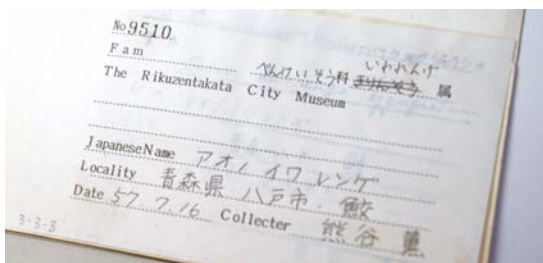 No.9510
いわれんげ
Fam べんけいそう科 属
The Rikuzentakata City Museum
Japanese Name アオノイワレンゲ
Locality 青森県 八戸市 鮫
Date 57.7.16 Collecter 熊谷
3-3-3